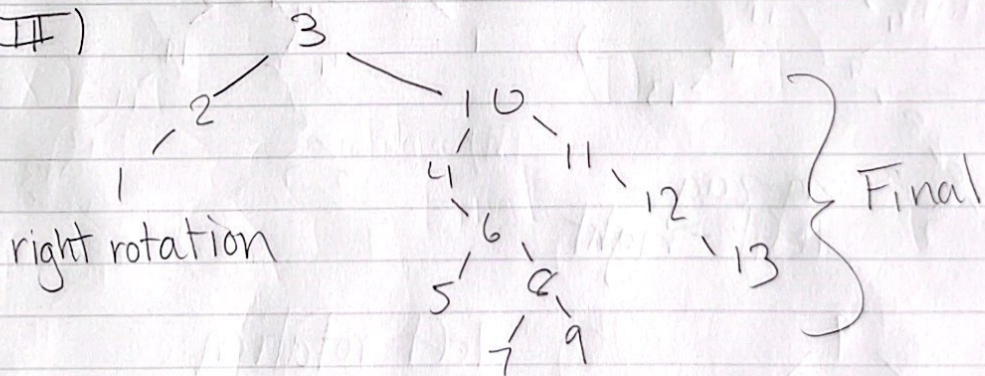 II) 3
2 10
1 4 11
12 Final
right rotation 6 13
5 8
7 9